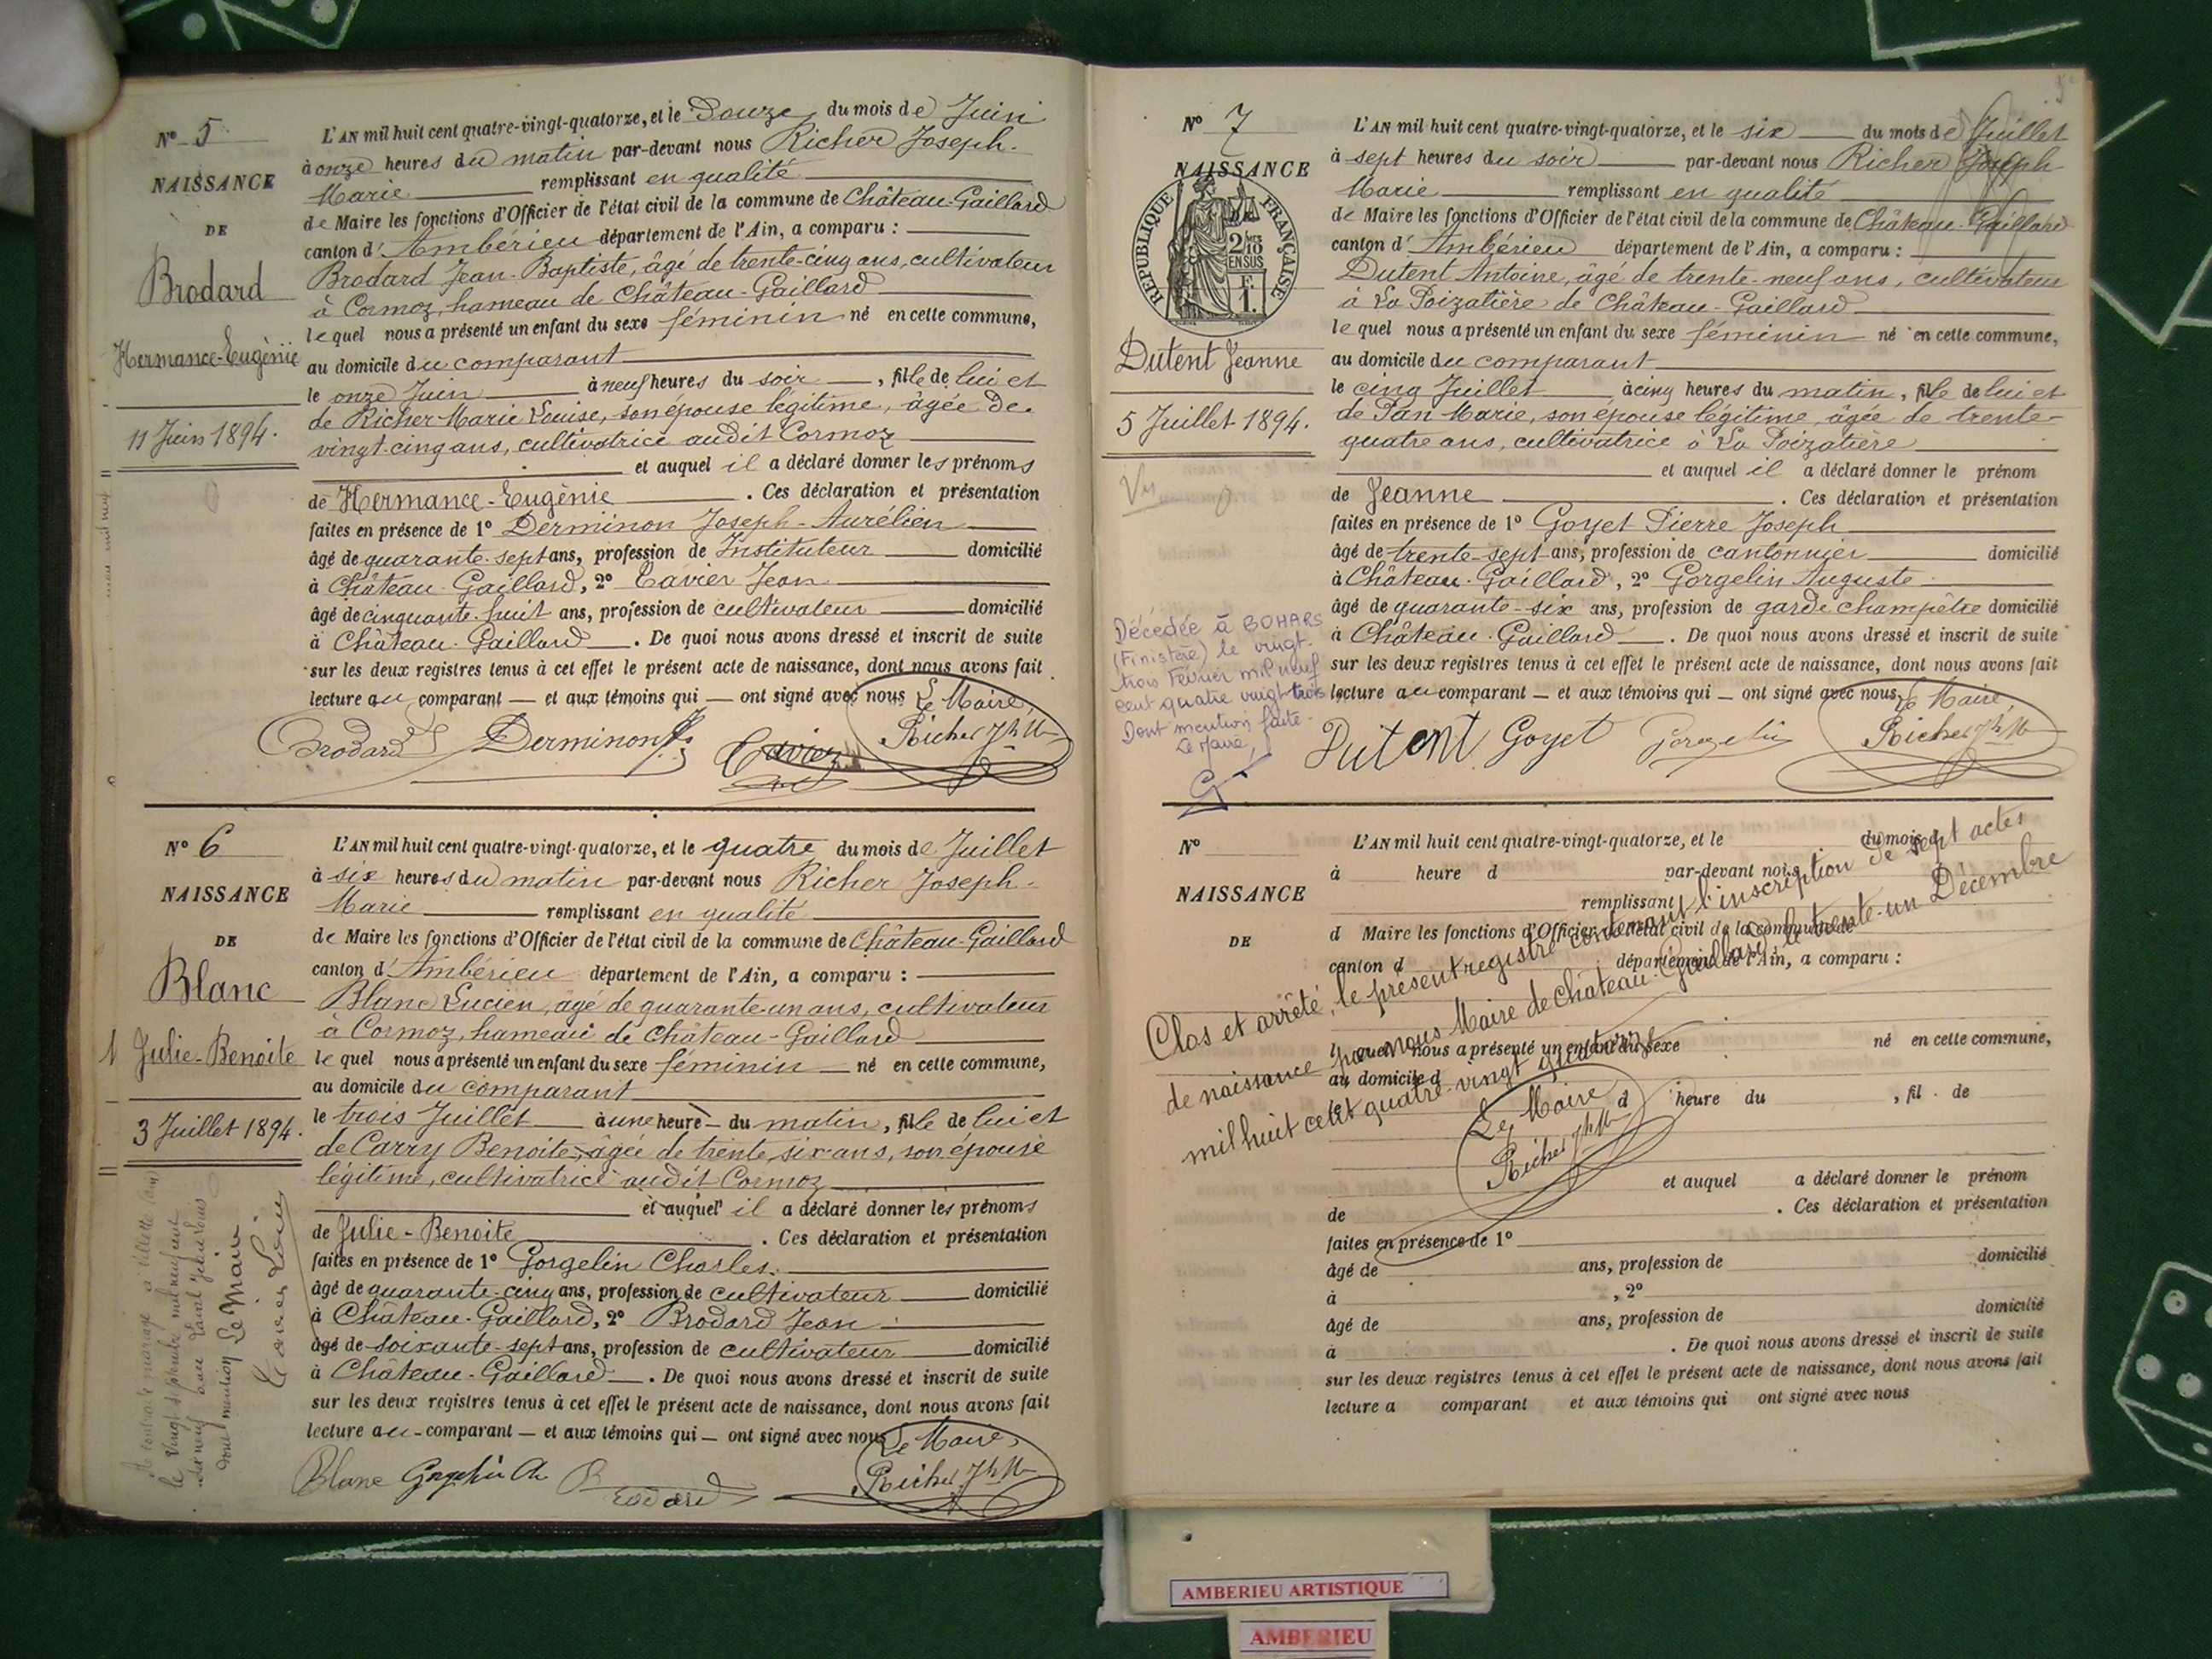 Nº 5
NAISSANCE
DE
Brodard
Hermance-Eugénie
11 Juin 1894.
L'AN mil huit cent quatre-vingt-quatorze, et le Douze du mois de Juin
à onze heures du matin par-devant nous Richer Joseph-
Marie remplissant en qualité
de Maire les fonctions d'Officier de l'état civil de la commune de Château-Gaillard
canton d'Ambérieu département de l'Ain, a comparu :
Brodard Jean-Baptiste, âgé de trente-cinq ans, cultivateur
à Cormoz, hameau de Château-Gaillard
lequel nous a présenté un enfant du sexe féminin né en cette commune,
au domicile du comparant
le onze Juin à neuf heures du soir, fille de lui et
de Richer Marie Louise, son épouse légitime, âgée de
vingt-cinq ans, cultivatrice audit Cormoz
et auquel il a déclaré donner les prénoms
de Hermance-Eugénie. Ces déclaration et présentation
faites en présence de 1º Derminon Joseph-Aurélien
âgé de quarante-sept ans, profession de Instituteur domicilié
à Château-Gaillard, 2º Cavier Jean
âgé de cinquante-huit ans, profession de cultivateur domicilié
à Château-Gaillard. De quoi nous avons dressé et inscrit de suite
sur les deux registres tenus à cet effet le présent acte de naissance, dont nous avons fait
lecture au comparant — et aux témoins qui — ont signé avec nous Le Maire,
Brodard Derminon Cavier Richer Jh Me
Nº 6
NAISSANCE
DE
Blanc
1 Julie-Benoite
3 Juillet 1894.
L'AN mil huit cent quatre-vingt-quatorze, et le quatre du mois de Juillet
à six heures du matin par-devant nous Richer Joseph-
Marie remplissant en qualité
de Maire les fonctions d'Officier de l'état civil de la commune de Château-Gaillard
canton d'Ambérieu département de l'Ain, a comparu :
Blanc Lucien, âgé de quarante-un ans, cultivateur
à Cormoz, hameau de Château-Gaillard
lequel nous a présenté un enfant du sexe féminin né en cette commune,
au domicile du comparant
le trois Juillet à une heure du matin, fille de lui et
de Carry Benoite, âgée de trente-six ans, son épouse
légitime, cultivatrice audit Cormoz
et auquel il a déclaré donner les prénoms
de Julie-Benoite. Ces déclaration et présentation
faites en présence de 1º Gorgelin Charles.
âgé de quarante-cinq ans, profession de cultivateur domicilié
à Château-Gaillard, 2º Brodard Jean
âgé de soixante-sept ans, profession de cultivateur domicilié
à Château-Gaillard. De quoi nous avons dressé et inscrit de suite
sur les deux registres tenus à cet effet le présent acte de naissance, dont nous avons fait
lecture au comparant — et aux témoins qui — ont signé avec nous Le Maire,
Blanc Gorgelin Ch Brodard Richer Jh Me
A contracté mariage à Villette (Ain)
le vingt septembre mil neuf cent
dix neuf avec Jean Louis
dont mention Le Maire
Nº 7
NAISSANCE
DE
RÉPUBLIQUE FRANÇAISE
2/10 EN SUS
F. 1.
Dutent Jeanne
5 Juillet 1894.
Vu
Décédée à BOHARS
(Finistère) le vingt-
trois Février mil neuf
cent quatre vingt trois
Dont mention faite.
Le Maire,
L'AN mil huit cent quatre-vingt-quatorze, et le six du mois de Juillet
à sept heures du soir par-devant nous Richer Joseph
Marie remplissant en qualité
de Maire les fonctions d'Officier de l'état civil de la commune de Château-Gaillard
canton d'Ambérieu département de l'Ain, a comparu :
Dutent Antoine, âgé de trente-neuf ans, cultivateur
à La Poizatière de Château-Gaillard
lequel nous a présenté un enfant du sexe féminin né en cette commune,
au domicile du comparant
le cinq Juillet à cinq heures du matin, fille de lui et
de Pan Marie, son épouse légitime, âgée de trente-
quatre ans, cultivatrice à La Poizatière
et auquel il a déclaré donner le prénom
de Jeanne. Ces déclaration et présentation
faites en présence de 1º Goyet Pierre Joseph
âgé de trente-sept ans, profession de cantonnier domicilié
à Château-Gaillard, 2º Gorgelin Auguste
âgé de quarante-six ans, profession de garde champêtre domicilié
à Château-Gaillard. De quoi nous avons dressé et inscrit de suite
sur les deux registres tenus à cet effet le présent acte de naissance, dont nous avons fait
lecture au comparant — et aux témoins qui — ont signé avec nous, Le Maire
Dutent Goyet Gorgelin Richer Jh Me
Nº
NAISSANCE
DE
L'AN mil huit cent quatre-vingt-quatorze, et le du mois d
à heure d par-devant nous
remplissant
d Maire les fonctions d'Officier de l'état civil de la commune de
canton d département de l'Ain, a comparu :
lequel nous a présenté un enfant du sexe né en cette commune,
au domicile d
le à heure du , fil . de
et auquel a déclaré donner le prénom
de . Ces déclaration et présentation
faites en présence de 1º
âgé de ans, profession de domicilié
à , 2º
âgé de ans, profession de domicilié
à . De quoi nous avons dressé et inscrit de suite
sur les deux registres tenus à cet effet le présent acte de naissance, dont nous avons fait
lecture a comparant et aux témoins qui ont signé avec nous
Clos et arrêté, le présent registre contenant l'inscription de sept actes
de naissance par nous Maire de Château-Gaillard, le trente-un Décembre
mil huit cent quatre-vingt quatorze
Le Maire
Richer Jh Me
AMBERIEU ARTISTIQUE
AMBERIEU